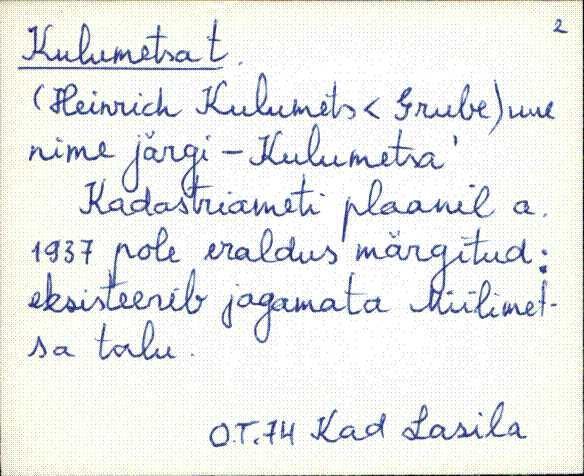 2
Kulumetsa t.
(Heinrich Kulumets < Grube) uue
nime järgi – Kulumetsa'
Kadastriameti plaanil a.
1937 pole eraldus märgitud:
eksisteerib jagamata Miilimet-
sa talu.
O.T. 74 Kad Lasila